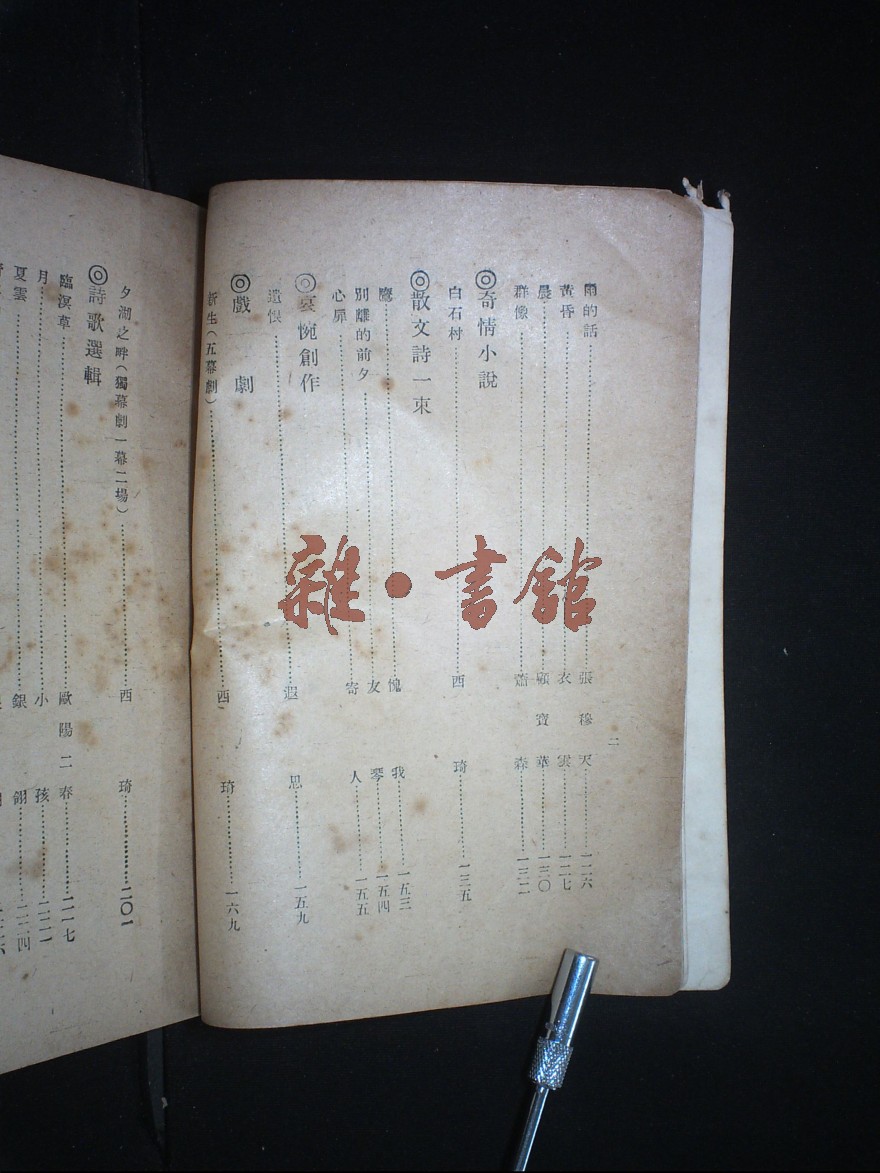 二
雨的話……張穆天……一二六
黃昏……衣雲……一二七
晨……顧寶華……一三〇
群像……蕭森……一三二
◎奇情小說
白石村……西琦……一三五
◎散文詩一束
鷹……愧我……一五三
別離的前夕……友琴……一五四
心扉……寄人……一五五
◎哀惋創作
遺恨……遐思……一五九
◎戲劇
新生（五幕劇）……西琦……一六九
夕湖之畔（獨幕劇一幕二場）……西琦……二〇一
◎詩歌選輯
臨溟草……歐陽二春……二一七
月……小孩……二二二
夏雲……銀翎……二二四
雜·書館